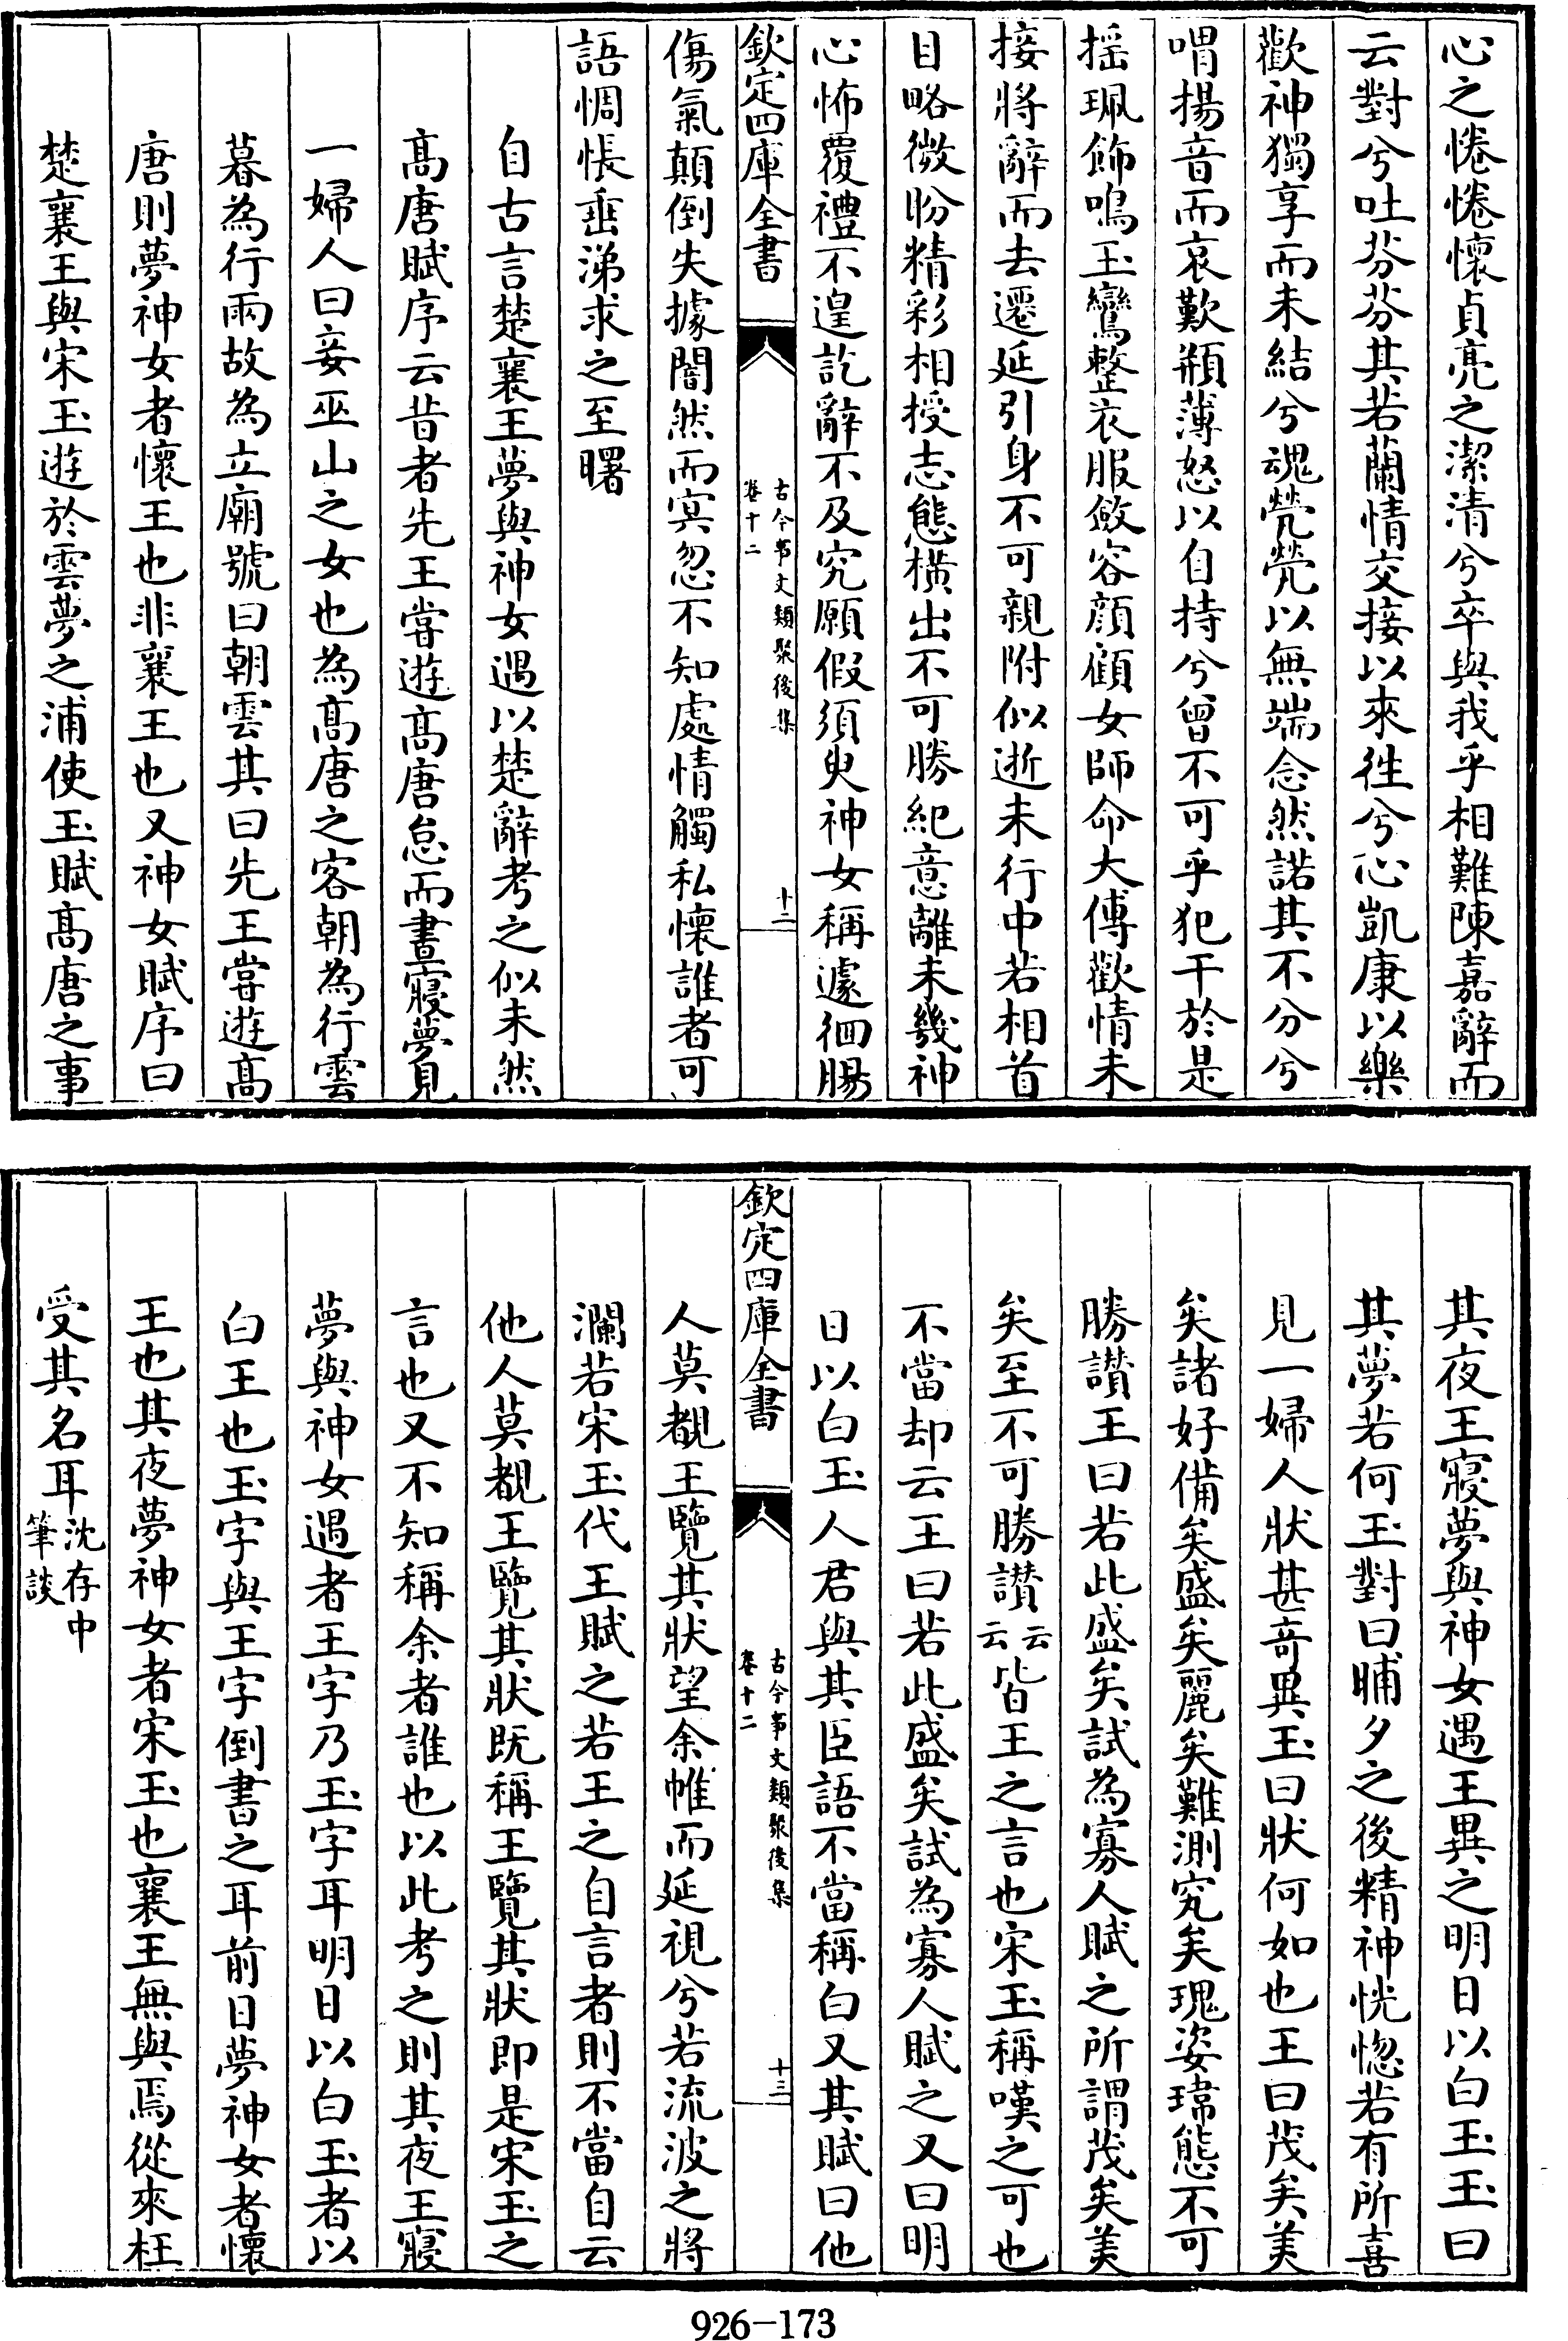 心之惓惓懷貞亮之潔清兮卒與我乎相難陳嘉辭而
云對兮吐芬芬其若蘭情交接以來徃兮心凱康以樂
歡神獨享而未結兮魂煢煢以無端念然諾其不分兮
喟揚音而哀歎頩薄怒以自持兮曾不可乎犯干於是
揺珮飾鳴玉鸞整衣服斂容顔顧女師命大傅歡情未
接將辭而去遷延引身不可親附似逝未行中若相首
目略微盼精彩相授志態横出不可勝紀意離未幾神
心怖覆禮不遑訖辭不及究願假須臾神女稱遽徊腸
欽定四庫全書
古今事文類聚後集
卷十二
十二
傷氣顛倒失據闇然而㝠忽不知處情觸私懷誰者可
語惆悵垂涕求之至曙
自古言楚襄王夢與神女遇以楚辭考之似未然
髙唐賦序云昔者先王嘗遊髙唐怠而晝寢夢見
一婦人曰妾巫山之女也為髙唐之客朝為行雲
暮為行雨故為立廟號曰朝雲其曰先王嘗遊髙
唐則夢神女者懷王也非襄王也又神女賦序曰
楚襄王與宋玉遊於雲夢之浦使玉賦髙唐之事
其夜王寢夢與神女遇王異之明日以白玉玉曰
其夢若何玉對曰晡夕之後精神恍惚若有所喜
見一婦人狀甚竒異玉曰狀何如也王曰茂矣美
矣諸好備矣盛矣麗矣難測究矣瑰姿瑋態不可
勝讃王曰若此盛矣試為寡人賦之所謂茂矣美
矣至不可勝讃云云皆王之言也宋玉稱嘆之可也
不當却云王曰若此盛矣試為寡人賦之又曰明
日以白玉人君與其臣語不當稱白又其賦曰他
欽定四庫全書
古今事文類聚後集
卷十二
十三
人莫覩王覽其狀望余帷而延視兮若流波之將
瀾若宋玉代王賦之若王之自言者則不當自云
他人莫覩王覽其狀既稱王覽其狀即是宋玉之
言也又不知稱余者誰也以此考之則其夜王寢
夢與神女遇者王字乃玉字耳明日以白玉者以
白王也玉字與王字倒書之耳前日夢神女者懷
王也其夜夢神女者宋玉也襄王無與焉從來枉
受其名耳沈存中筆談
926-173